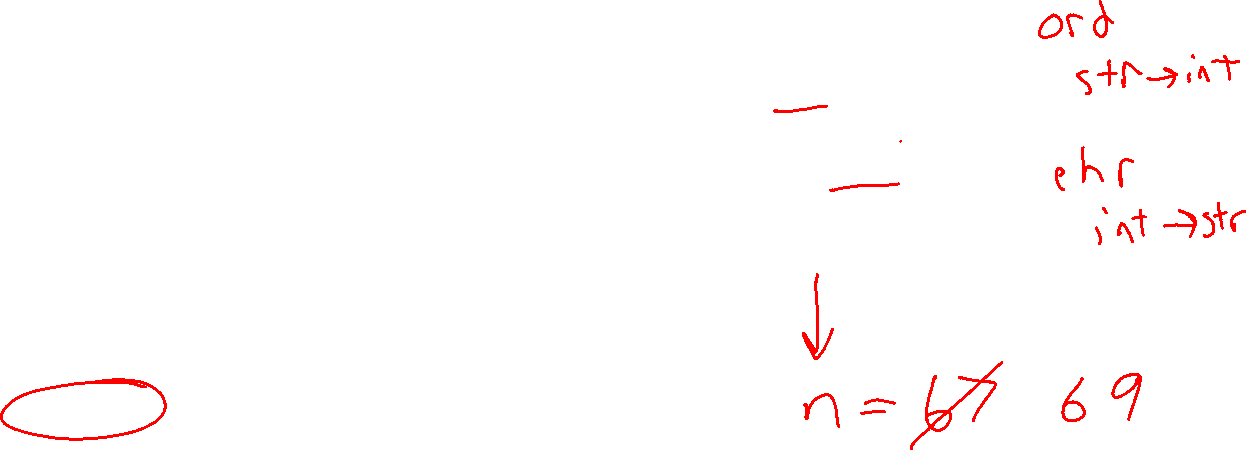 ord
str→int
chr
int→str
n = 67 69